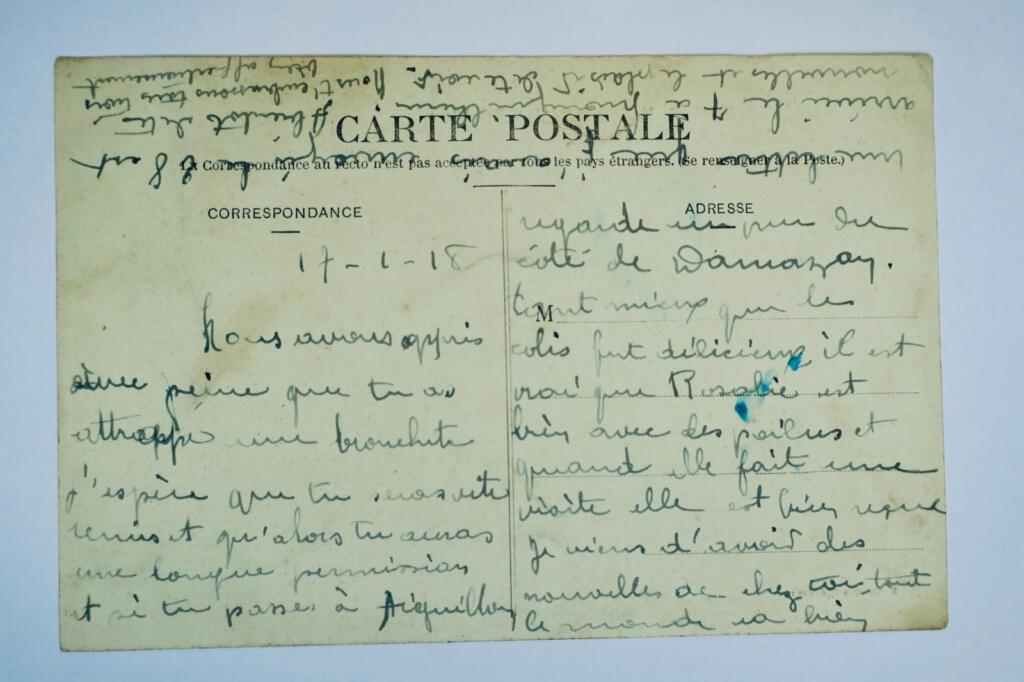 CARTE POSTALE
La Correspondance au recto n'est pas acceptée par tous les pays étrangers. (Se renseigner à la Poste.)
CORRESPONDANCE
17-1-18
Nous avons appris
avec peine que tu as
attrappé une bronchite
j'espère que tu seras vite
remis et qu'alors tu auras
une longue permission
et si tu passes à Aiguillon
ADRESSE
M
regarde un peu du
côté de Damazan.
tant mieux que le
colis fut délicieux il est
vrai que Rosalie est
bien avec des poilus et
quand elle fait une
visite elle est bien reçue
Je viens d'avoir des
nouvelles de chez toi, tout
le monde va bien
une lettre que j'avais le 28 est
arrivée le 7 à bientôt de tes
nouvelles et le plaisir de te voir. Nous t'embrassons tous trois
bien affectueusement